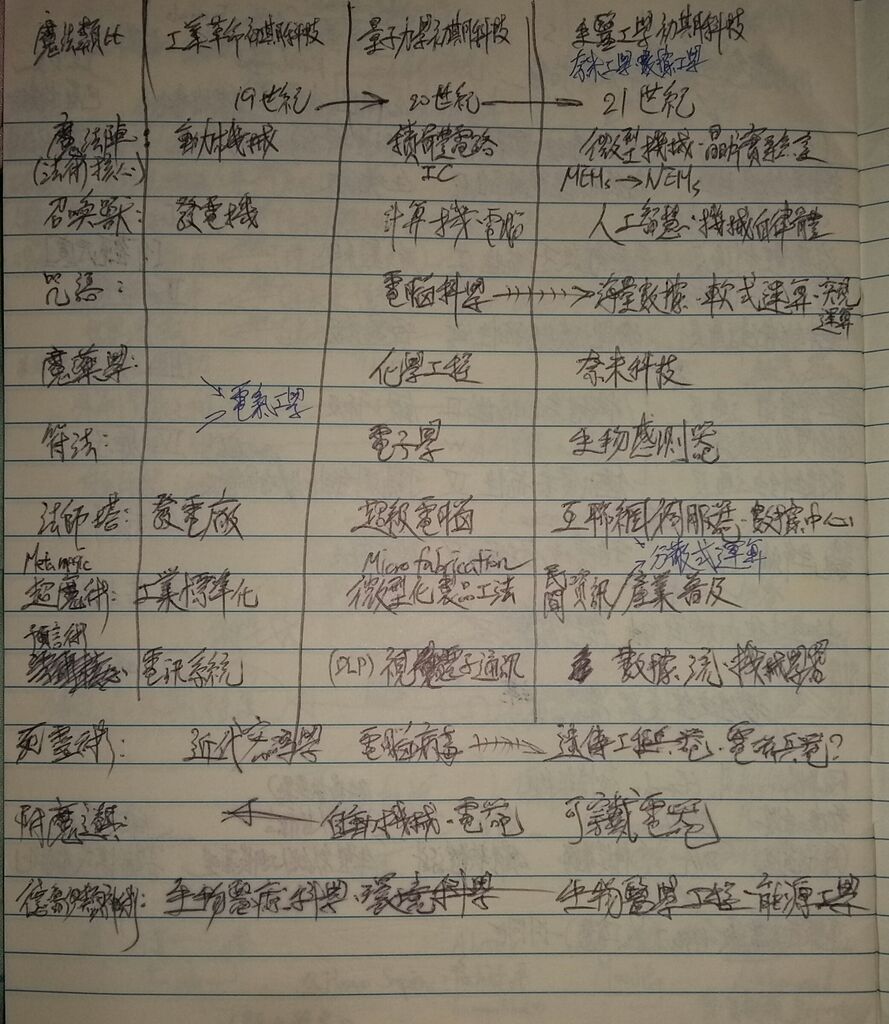 魔法類比 工業革命初期科技 量子力學初期科技 生醫工學初期科技
奈米工學・數據工學
19世紀 → 20世紀 → 21世紀
魔法陣: 動力機械 積體電路 微型機械・晶片實驗室
(法術核心) IC MEMs→NEMs
召喚獸: 發電機 計算機・電腦 人工智慧・機械自律體
咒語: 電腦科學 → 海量數據・軟式運算・
運算
魔藥學: 化學工程 奈米科技
電氣工學
符法: 電子學 生物感測器
法師塔: 發電廠 超級電腦 互聯網伺服器・數據中心
Metamagic Microfabrication 分散式運算
超魔術: 工業標準化 微型化製品工法 民間資訊/產業普及
預言術
電訊系統 (DLP) 視覺電子通訊 數據流・機械學習
死靈術: 近代 電腦病毒 → 遺傳工程兵器・電磁兵器?
附魔道具: ← 自動機械・電器 可穿戴電器
德魯伊類神術: 生物醫療科學・環境科學 生物醫學工程・能源工學